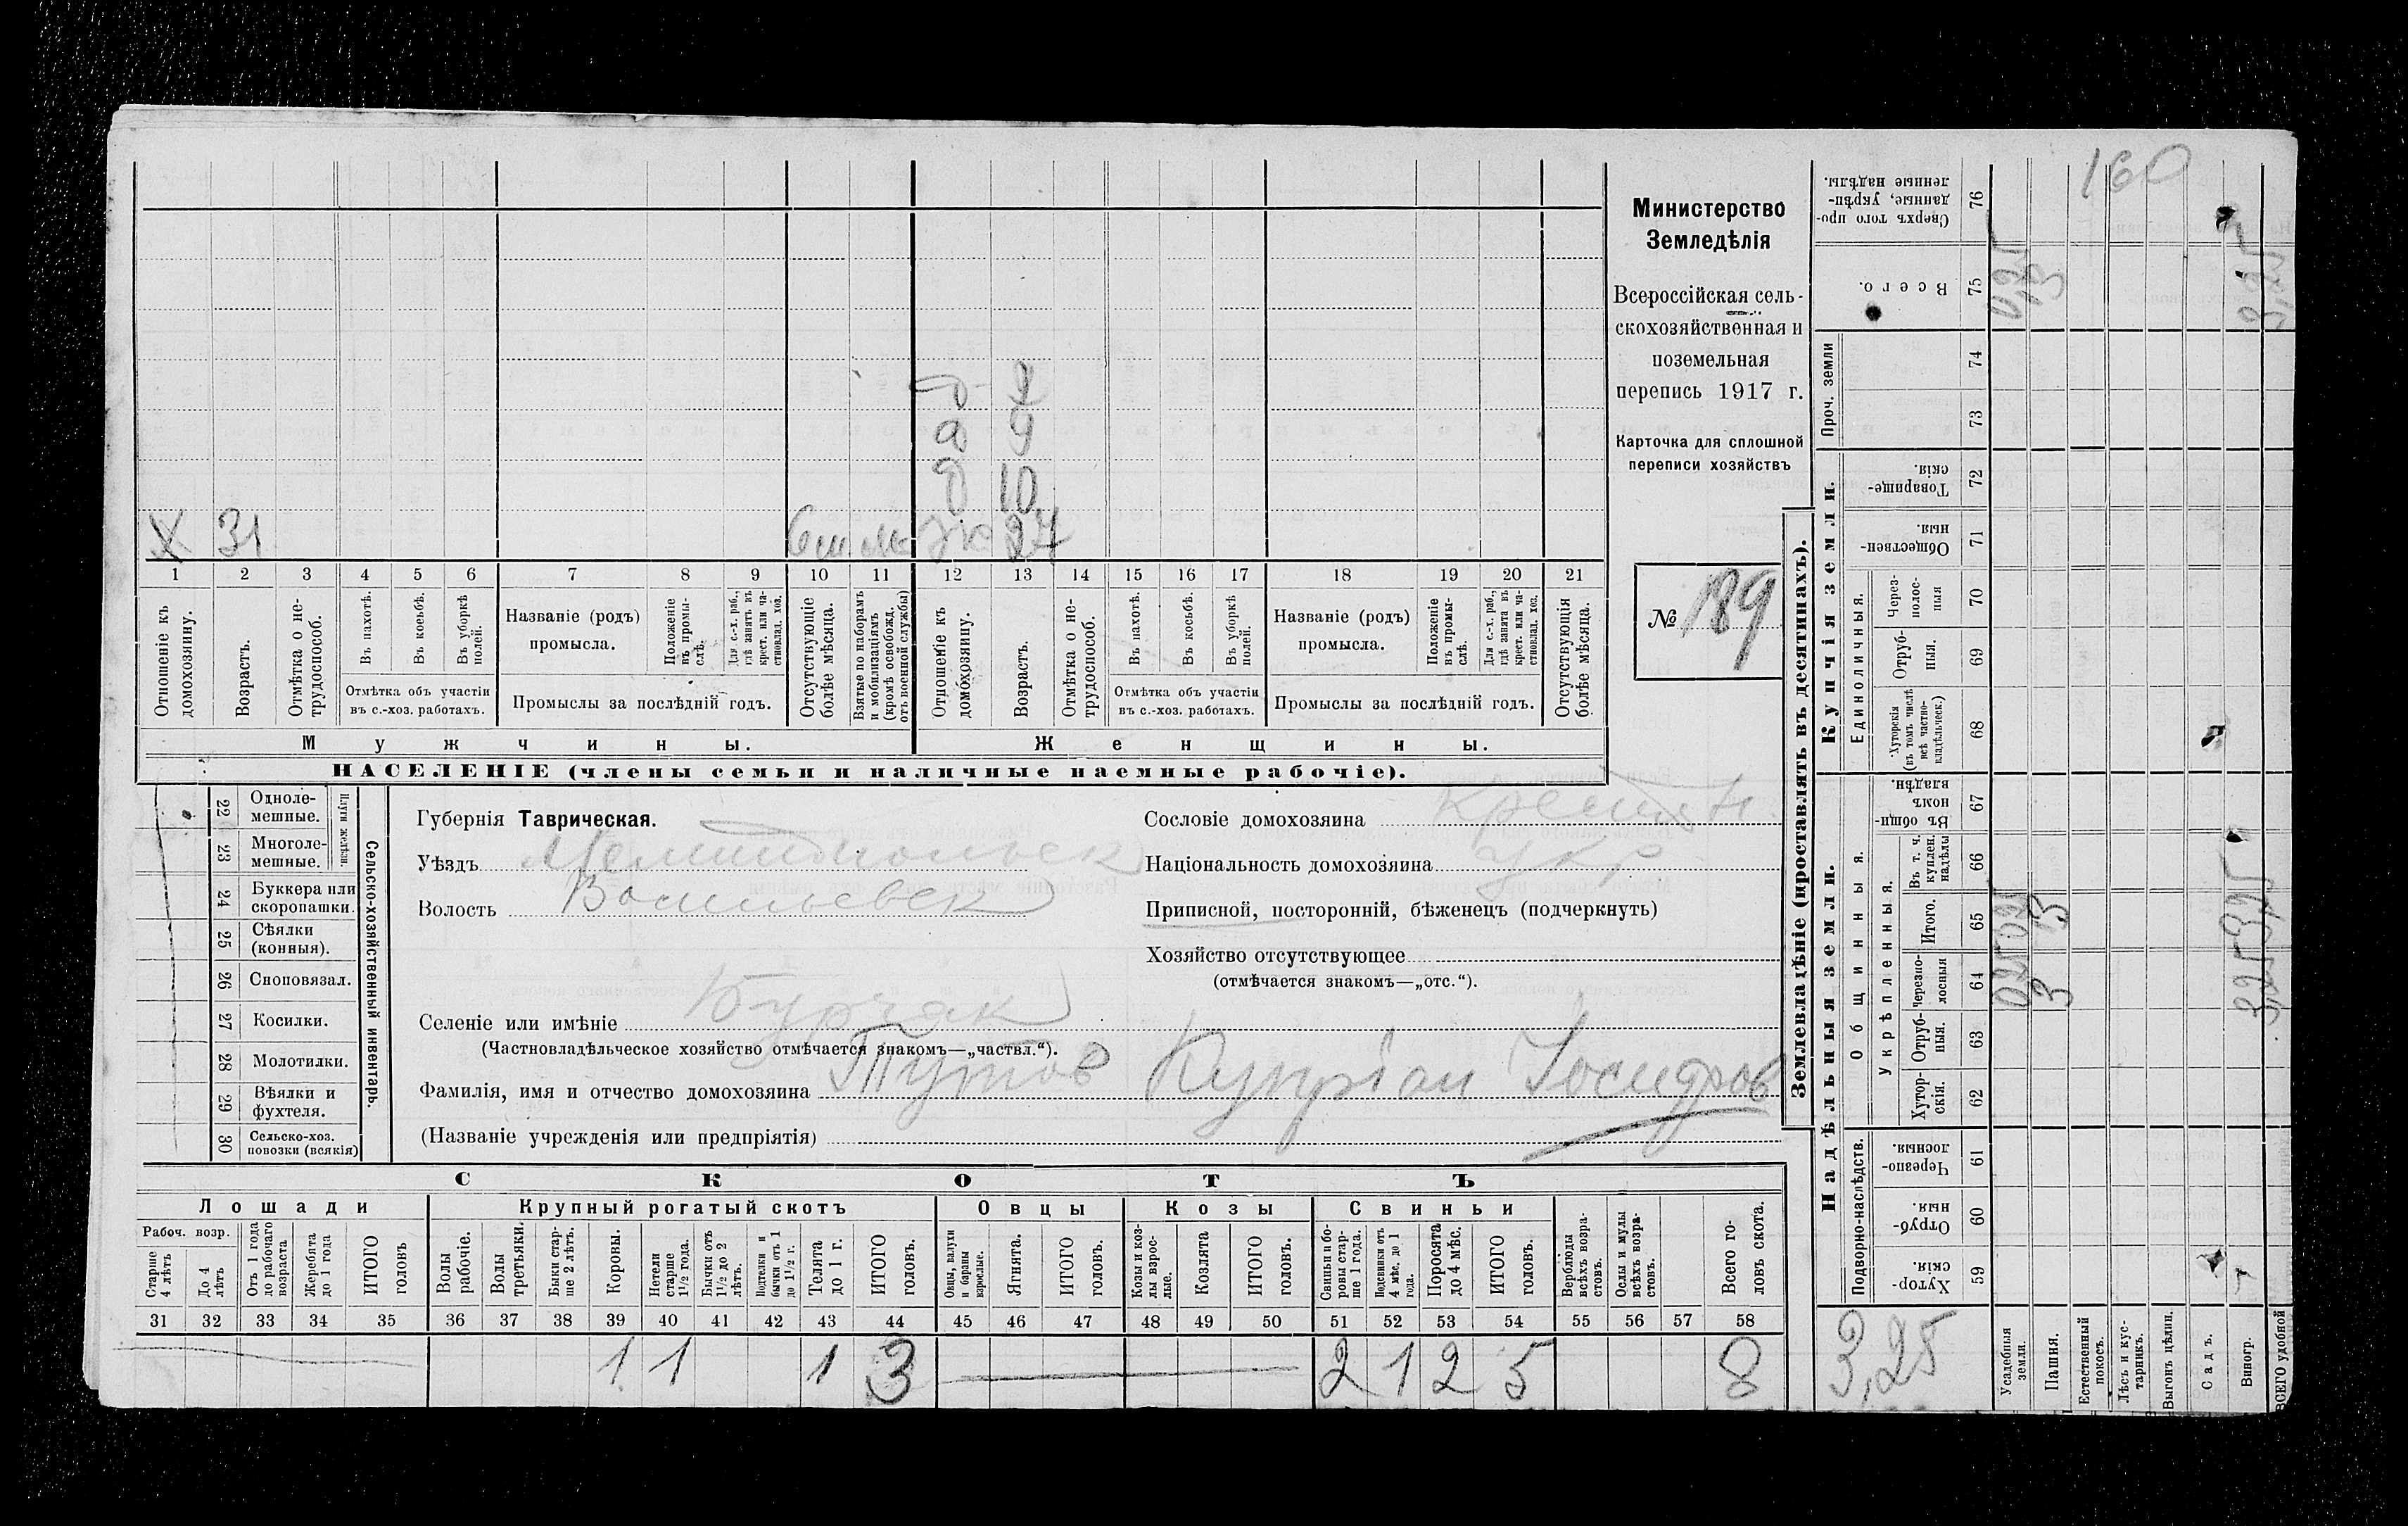 160
д 2
д 9
д 10
Х 31 ж 27
1 2 3 4 5 6 7 8 9 10 11 12 13 14 15 16 17 18 19 20 21
Отношеніе къ домохозяину.
Возрастъ.
Отмѣтка о не-
трудоспособ.
Въ пахотѣ.
Въ косьбѣ.
Въ уборкѣ
полей.
Отмѣтка объ участіи
въ с.-хоз. работахъ.
Названіе (родъ)
промысла.
Положеніе
въ промы-
слѣ.
Для с.-х. раб.,
гдѣ занятъ въ
крест. или ча-
стновлад. хоз.
Промыслы за послѣдній годъ.
Отсутствующіе
болѣе мѣсяца.
Взятые по наборамъ
и мобилизаціямъ
(кромѣ освобожд.
отъ военной службы)
Отношеніе къ
домохозяину.
Возрастъ.
Отмѣтка о не-
трудоспособ.
Въ пахотѣ.
Въ косьбѣ.
Въ уборкѣ
полей.
Отмѣтка объ участіи
въ с.-хоз. работахъ.
Названіе (родъ)
промысла.
Положеніе
въ промы-
слѣ.
Для с.-х. раб.,
гдѣ занята въ
крест. или ча-
стновлад. хоз.
Промыслы за послѣдній годъ.
Отсутствующія
болѣе мѣсяца.
Мужчины. Женщины.
НАСЕЛЕНІЕ (члены семьи и наличные наемные рабочіе).
Министерство
Земледѣлія
Всероссійская сель-
скохозяйственная и
поземельная
перепись 1917 г.
Карточка для сплошной
переписи хозяйствъ
№ 189
Сельско-хозяйственный инвентарь.
Плуги желѣзн.
22 Одноле-
мешные.
23 Многоле-
мешные.
24 Буккера или
скоропашки.
25 Сѣялки
(конныя).
26 Сноповязал.
27 Косилки.
28 Молотилки.
29 Вѣялки и
фухтеля.
30 Сельско-хоз.
повозки (всякія)
Губернія Таврическая.
Уѣздъ Мелитопольск
Волость Васильевск
Сословіе домохозяина крестьян.
Національность домохозяина укр
Приписной, посторонній, бѣженецъ (подчеркнуть)
Хозяйство отсутствующее
(отмѣчается знакомъ—„отс.“).
Селеніе или имѣніе Бурчак
(Частновладѣльческое хозяйство отмѣчается знакомъ—„частвл.“).
Фамилія, имя и отчество домохозяина Тутов Купріан Іосифов
(Названіе учрежденія или предпріятія)
СКОТЪ
Лошади Крупный рогатый скотъ Овцы Козы Свиньи
Рабоч. возр.
Старше
4 лѣтъ
До 4
лѣтъ
Отъ 1 года
до рабочаго
возраста
Жеребята
до 1 года
ИТОГО
головъ
Волы
рабочіе.
Волы
третьяки.
Быки стар-
ше 2 лѣтъ.
Коровы.
Нетели
старше
1½ года.
Бычки отъ
1½ до 2
лѣтъ.
Подтелки и
бычки отъ 1
до 1½ г.
Телята
до 1 г.
ИТОГО
головъ.
Овцы, валухи
и бараны
взрослые.
Ягнята.
ИТОГО
головъ.
Козы и коз-
лы взрос-
лые.
Козлята
ИТОГО
головъ.
Свиньи и бо-
ровы стар-
ше 1 года.
Подсвинки отъ
4 мѣс. до 1
года.
Поросята
до 4 мѣс.
ИТОГО
головъ.
Верблюды
всѣхъ возра-
стовъ.
Ослы и мулы
всѣхъ возра-
стовъ.
Всего го-
ловъ скота.
31 32 33 34 35 36 37 38 39 40 41 42 43 44 45 46 47 48 49 50 51 52 53 54 55 56 57 58
1 1 1 3 2 1 2 5 8
Землевладѣніе (проставлять въ десятинахъ).
Надѣльныя земли. Купчія земли. Проч. земли
Подворно-наслѣдств.
Общинныя.
Укрѣпленныя.
Единоличныя.
59 Хутор-
скія.
60 Отруб-
ныя.
61 Черезпо-
лосныя.
62 Хутор-
скія.
63 Отруб-
ныя.
64 Черезпо-
лосныя
65 Итого.
66 Въ т. ч.
куплен.
надѣлы
67 Въ общи-
номъ
владѣн.
68 Хуторскія
(въ томъ числѣ
всѣ частно-
владѣльческ.)
69 Отруб-
ныя.
70 Через-
полос-
ныя
71 Обществен-
ныя.
72 Товарище-
скія.
73
74
75 Всего.
76 Сверхъ того про-
данные, укрѣп-
ленные надѣлы.
3,25
Усадебныя
земли.
025 025 025
Пашня.
3 3 3
Естественный
покосъ.
Лѣсъ и кус-
тарникъ.
Выгонъ цѣлин.
Садъ.
Виногр.
ВСЕГО удобной
325 325 3,25